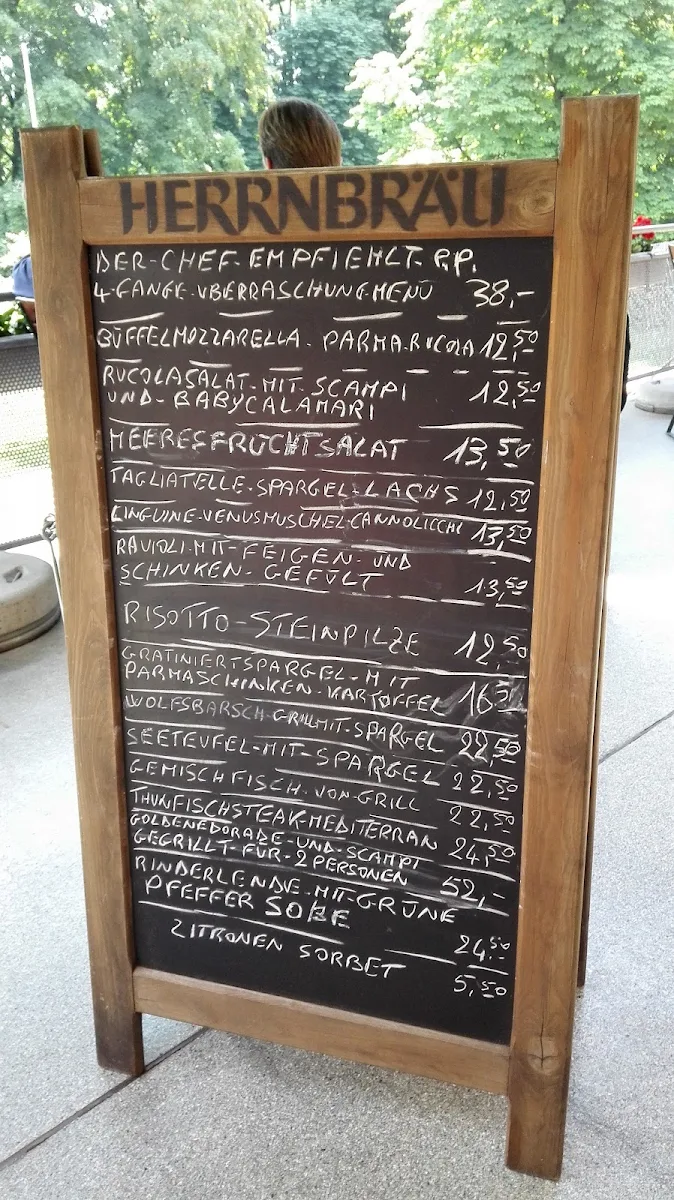 HERRNBRÄU
DER-CHEF-EMPFIEHLT-P.P.
4-GÄNGE-VBERRASCHUNGMENÜ 38,-
BÜFFELMOZZARELLA-PARMA-RUCOLA 12,50
RUCOLASALAT-MIT-SCAMPI 12,50
UND-BABYCALAMARI
MEERESFRÜCHTSALAT 13,50
TAGLIATELLE-SPARGEL-LACHS 12,50
LINGUINE-VENUSMUSCHEL-CANNOLICCHI 13,50
RAVIOLI-MIT-FEIGEN-UND
SCHINKEN-GEFÜLT 13,50
RISOTTO-STEINPILZE 12,50
GRATINIERTSPARGEL-MIT
PARMASCHINKEN-KARTOFFEL 16,50
WOLFSBARSCH-GRILLMIT-SPARGEL 22,50
SEETEUFEL-MIT-SPARGEL 22,50
GEMISCHFISCH-VON-GRILL 22,50
THUNFISCHSTEAK-MEDITERRAN 24,50
GOLDENEDORADE-UND-SCAMPI
GEGRILLT-FÜR-2 PERSONEN 52,-
RINDERLENDE-MIT-GRÜNE
PFEFFER SOßE 24,50
ZITRONEN SORBET 5,50